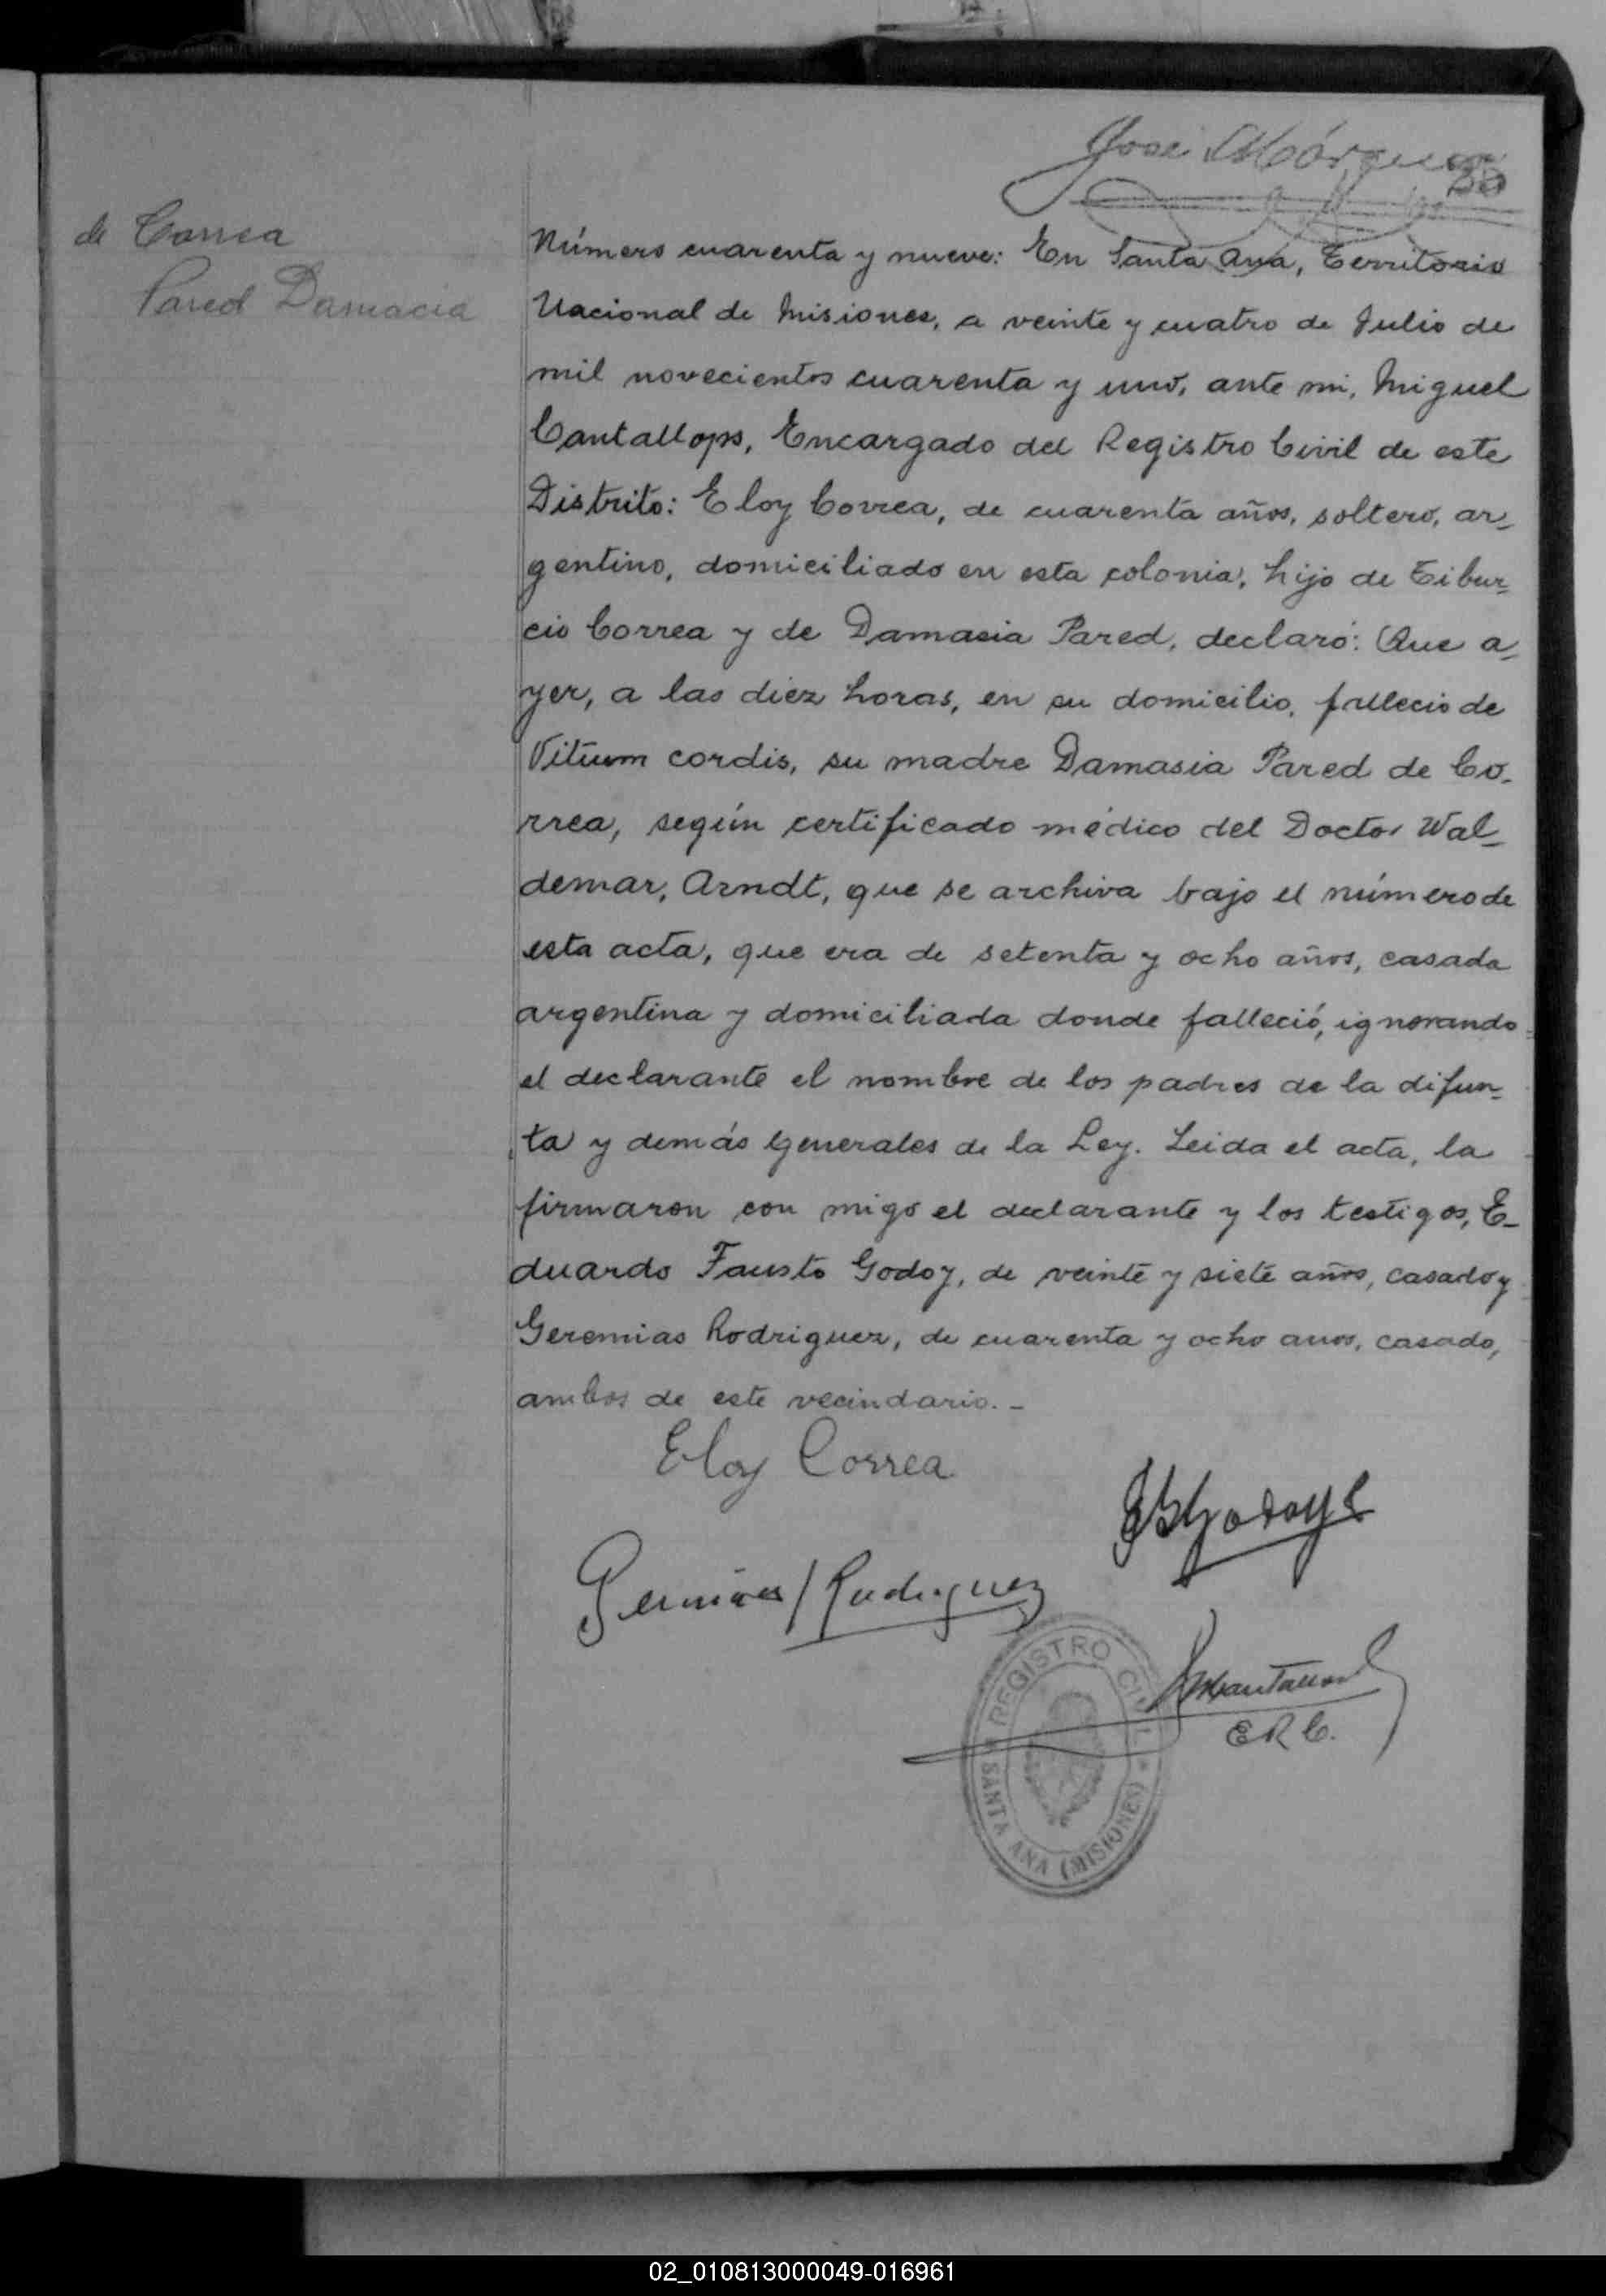 José Márquez
de Correa
Pared Damacia
Número cuarenta y nueve: En Santa Ana, Territorio
Nacional de Misiones, a veinte y cuatro de Julio de
mil novecientos cuarenta y uno, ante mi, Miguel
Cantallops, Encargado del Registro Civil de este
Distrito: Eloy Correa, de cuarenta años, soltero, ar-
gentino, domiciliado en esta colonia, hijo de Tibur-
cio Correa y de Damasia Pared, declaró: Que a-
yer, a las diez horas, en su domicilio, fallecio de
Vitium cordis, su madre Damasia Pared de Co-
rrea, según certificado médico del Doctor Wal-
demar, Arndt, que se archiva bajo el número de
esta acta, que era de setenta y ocho años, casada
argentina y domiciliada donde falleció, ignorando
el declarante el nombre de los padres de la difun-
ta y demás generales de la Ley. Leida el acta, la
firmaron con migo el declarante y los testigos, E-
duardo Fausto Godoy, de veinte y siete años, casado y
Geremias Rodriguez, de cuarenta y ocho anos, casado,
ambos de este vecindario.-
Eloy Correa
Rodriguez
REGISTRO CIVIL
SANTA ANA (MISIONES)
E R C.
02_010813000049-016961